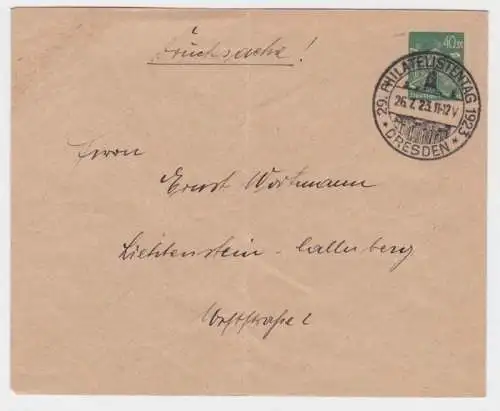 Drucksache!
40
29. PHILATELISTENTAG 1923
26.7.23.11-12V
* DRESDEN *
Herrn
Ernst Wortmann
Lichtenstein-Callnberg